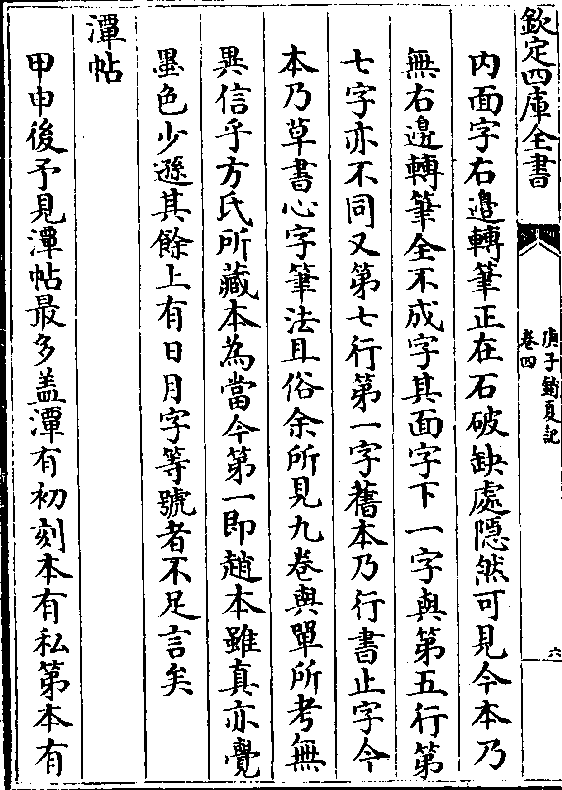 欽定四庫全書
庚子銷夏記
卷四
六
内面字右邉轉筆正在石破缺處隠然可見今本乃
無右邉轉筆全不成字其面字下一字與第五行第
七字亦不同又第七行第一字舊本乃行書止字今
本乃草書心字筆法且俗余所見九卷與單所考無
異信乎方氏所藏本為當今第一即趙本雖真亦覺
墨色少遜其餘上有日月字等號者不足言矣
潭帖
甲申後予見潭帖最多盖潭有初刻本有私第本有